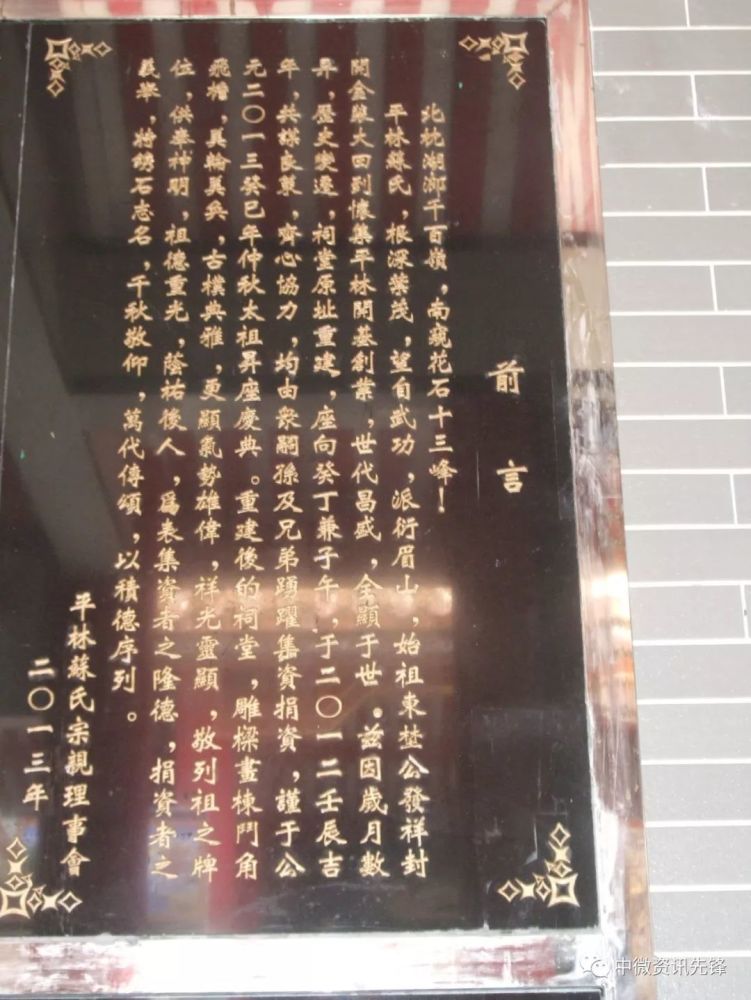 前言
北枕湖鄉千百嶺，南窺花石十三峰！
平林蘇氏，根深葉茂，望自武功，派衍眉山，始祖東埜公發祥封
開金裝大回到懷集平林開基創業，世代昌盛，全顯于世。茲因歲月數
昇，歷史變遷，祠堂原址重建，座向癸丁兼子午，于二〇一二壬辰吉
年，共謀良策，齊心協力，均由衆嗣孫及兄弟踴躍集資捐資，謹于公
元二〇一三癸巳年仲秋太祖昇座慶典。重建後的祠堂，雕樑畫棟鬥角
飛檐，美輪美奐，古樸典雅，更顯氣勢雄偉，祥光靈顯，敬列祖之牌
位，供奉神明，祖德重光，蔭祐後人，爲表集資者之隆德，捐資者之
義舉，特鐫石志名，千秋敬仰，萬代傳頌，以積德序列。
平林蘇氏宗親理事會
二〇一三年
中微资讯先锋